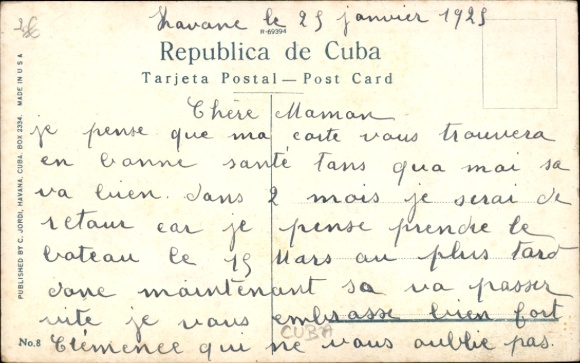 2£
Havane le 25 janvier 1925
R-69394
Republica de Cuba
Tarjeta Postal — Post Card
PUBLISHED BY C. JORDI, HAVANA, CUBA. BOX 2334. MADE IN U S A
Chère Maman
je pense que ma carte vous trouvera
en bonne santé tans qua moi sa
va bien. dans 2 mois je serai de
retour car je pense prendre le
bateau le 15 Mars au plus tard
donc maintenant sa va passer
vite je vous embrasse bien fort
CUBA
No.8 Clémence qui ne vous oublie pas.